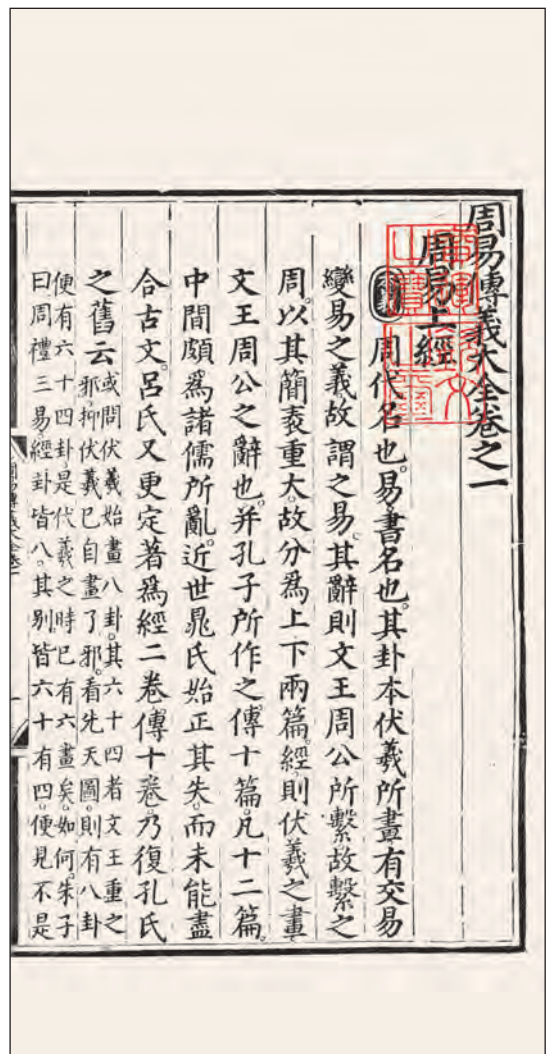 周易傳義大全卷之一
周易上經
周代名也。易書名也。其卦本伏羲所畫。有交易
變易之義。故謂之易。其辭則文王周公所繫。故繫之
周。以其簡袠重大。故分爲上下兩篇。經則伏羲之畫
文王周公之辭也。并孔子所作之傳十篇。凡十二篇。
中間頗爲諸儒所亂。近世晁氏始正其失。而未能盡
合古文。呂氏又更定著爲經二卷傳十卷。乃復孔氏
之舊云
或問伏羲始畫八卦。其六十四者文王重之
邪。抑伏羲已自畫了邪。看先天圖。則有八卦
便有六十四卦。是代羲之時已有六畫矣。如何。朱子
曰周禮三易經卦皆八。其別。皆六十有四。便見不是